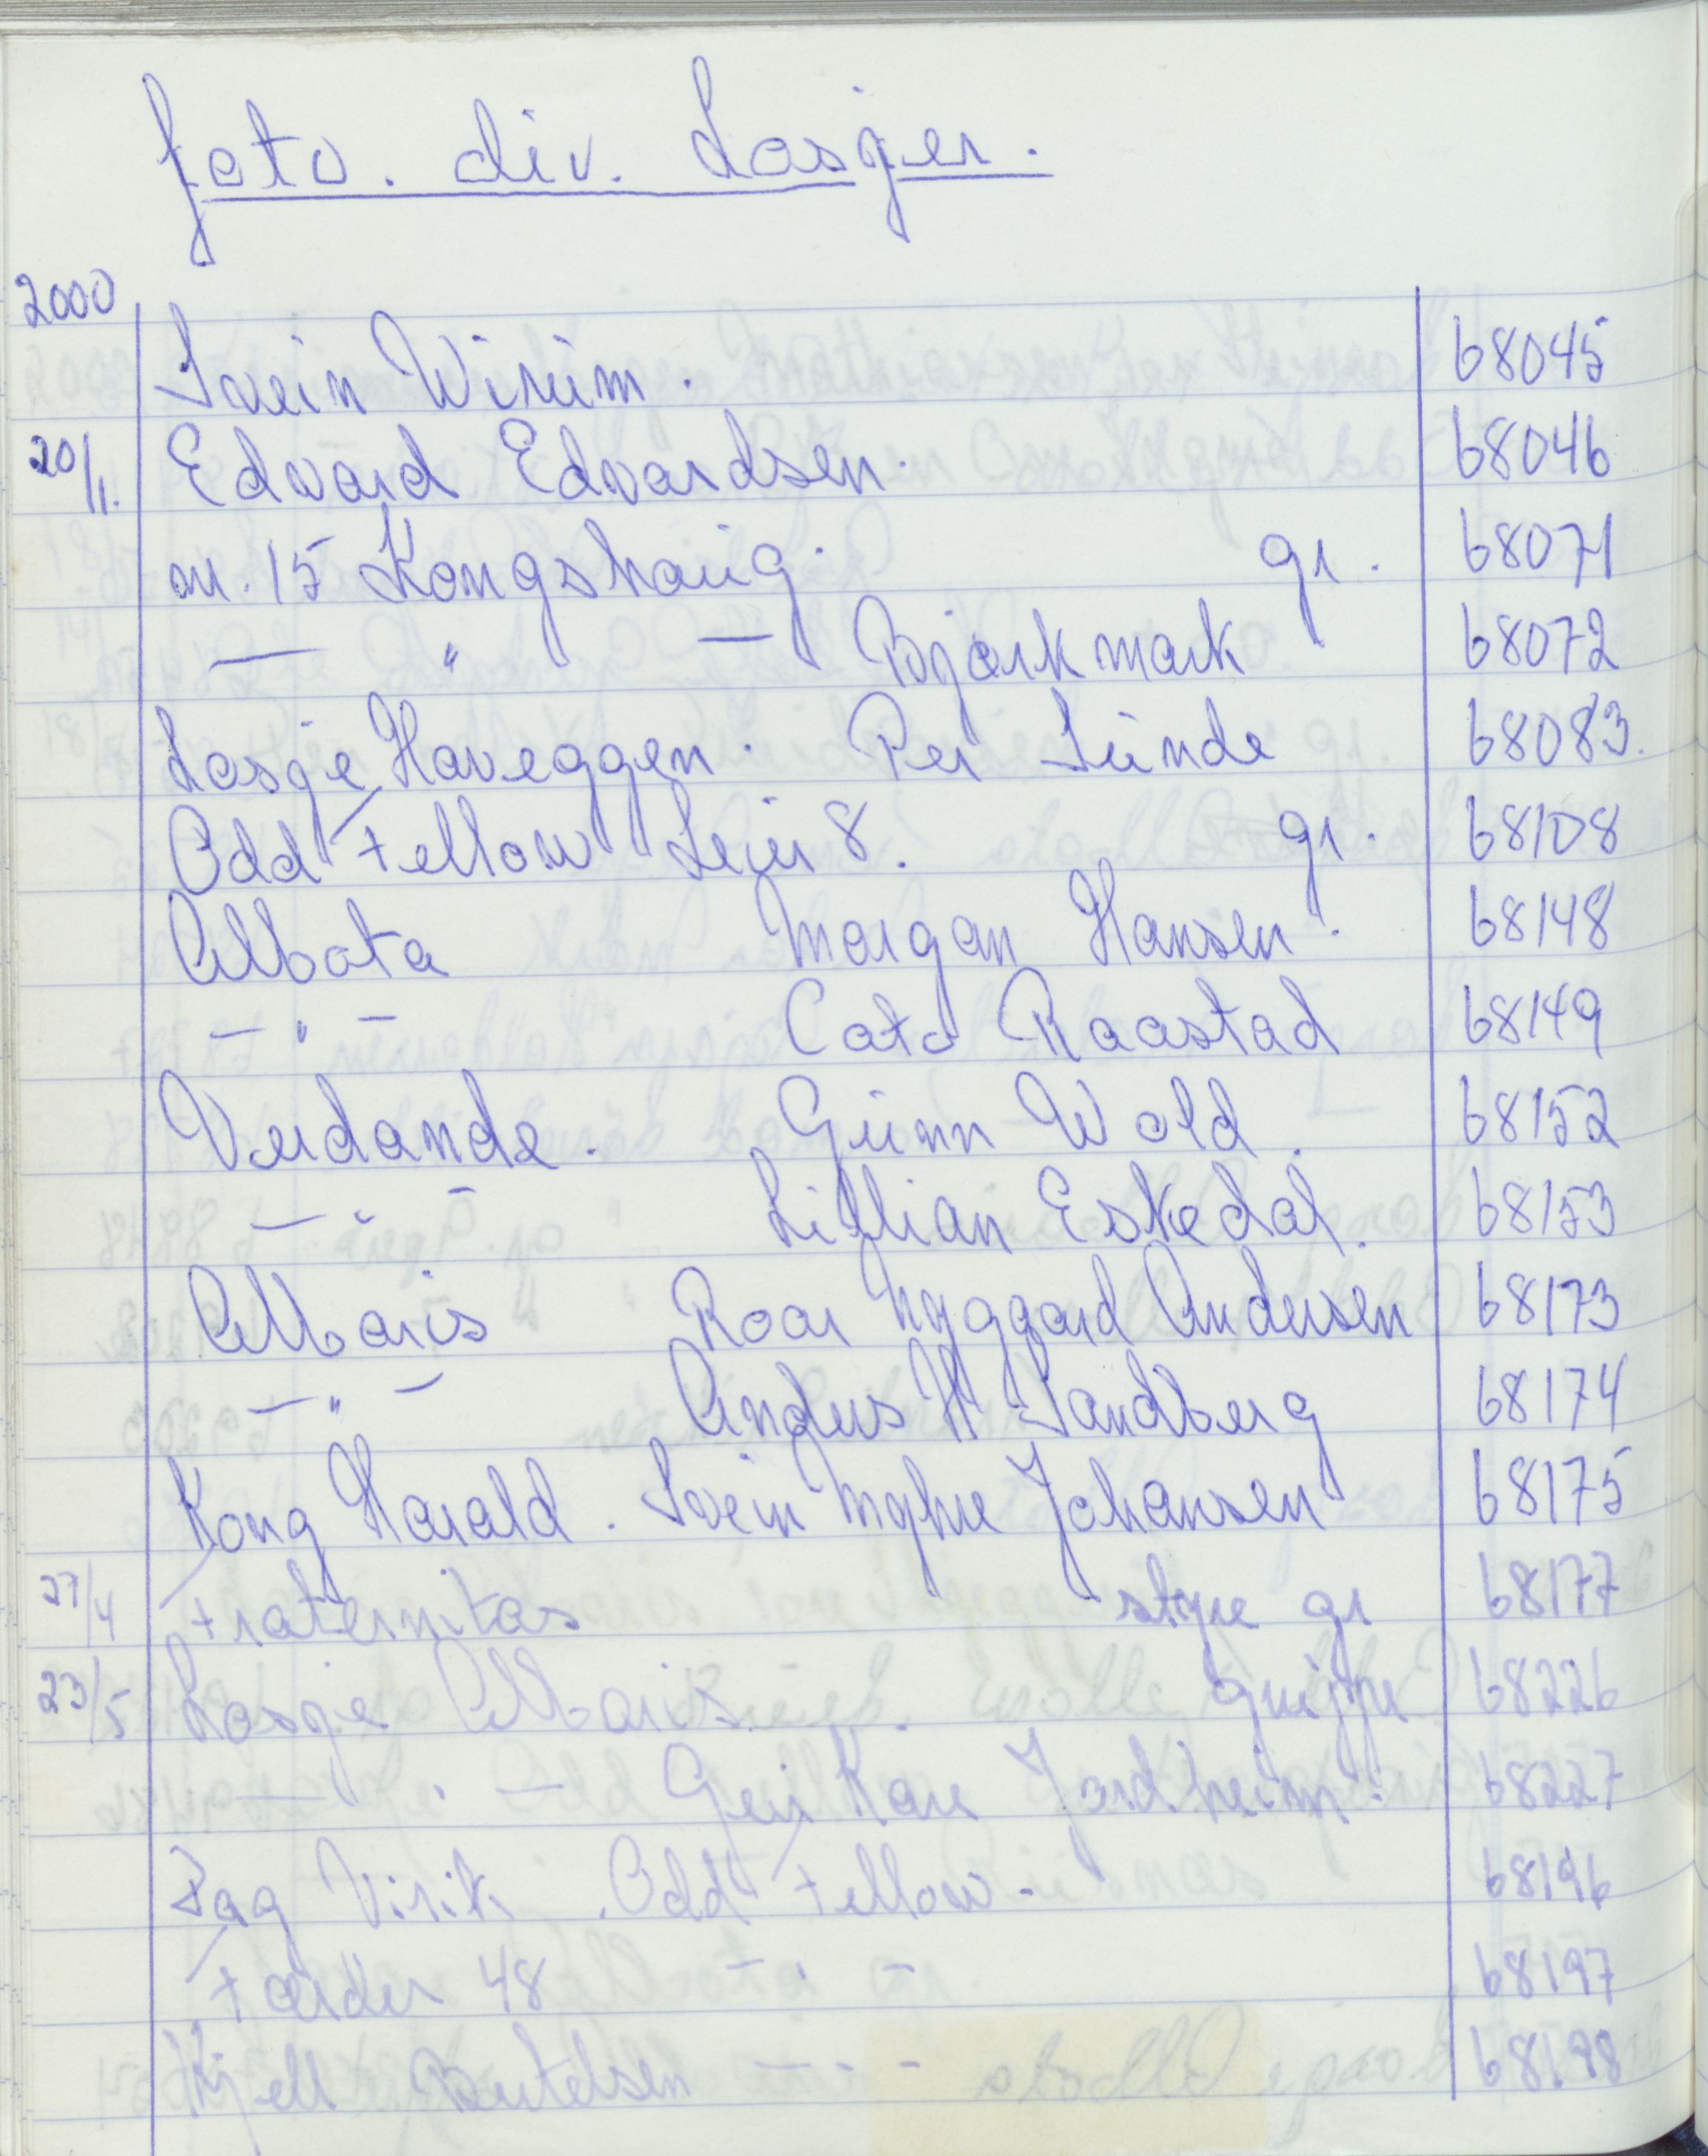 foto. div. Losjer.
2000
Svein Wirum. 68045
20/1. Edvard Edvardsen. 68046
nr. 15 Kongshaug. gr. 68071
— " — Bjørkmark 68072
Losje Haveggen. Per Sunde 68083.
Odd Fellow Leir 8. gr. 68108
Albata Morgan Hansen. 68148
— " — Cato Raastad 68149
Verdande. Gunn Wold. 68152
— " — Lillian Eskedal. 68153
Albaris Roar Nyggard Andersen 68173
— " — Anders H Sandberg 68174
Kong Harald. Svein Myhre Johansen 68175
27/4 Fraternitas styre gr 68177
23/5 Losje Albaris. gruppe 68226
— " — Geir Kåre Jordheim. 68227
Dag Virik. Odd Fellow. 68196
Færder 48 — " — 68197
Kjell Bertelsen — " — 68198